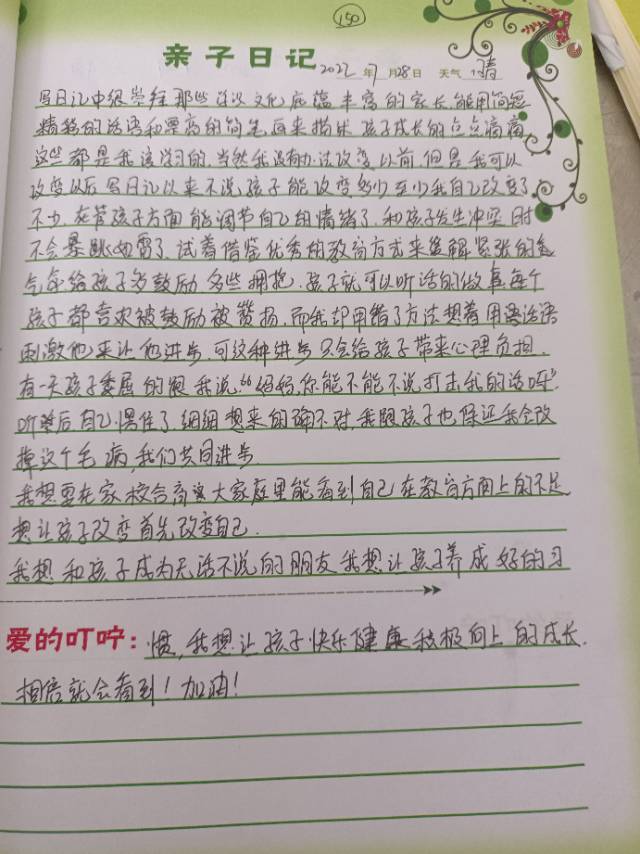 150
亲子日记 2022年7月28日 天气 晴
写日记中很崇拜那些 文化底蕴丰富的家长,能用简短
精辟的话语和票高的简笔画来描术孩子成长的点点滴滴
这些都是我该学习的,当然我没有办法改变以前,但是我可以
改变以后,写日记以来不说孩子能改变多少至少我自己改变了
不少,在管孩子方面能调节自己的情绪了,和孩子发生冲突时
不会暴跳如雷了,试着借鉴优秀的教育方式来缓解紧张的气
气氛给孩子多鼓励 多些拥抱,孩子就可以听话的做事每个
孩子都喜欢被鼓励被赞扬,而我却用错了方法想着用语话语
刺激他来让他进步,可这种进步只会给孩子带来心理负担.
有一天孩子委屈的跟我说“妈妈,你能不能不说打击我的话呀”
听着后自己愣住了,细细想来的确不对,我跟孩子也保证我会改
掉这个毛病,我们共同进步.
我想要在家校合商议大家庭里能看到自己在教育方面上的不足
想让孩子改变首先改变自己.
我想和孩子成为无话不说的朋友我想让孩子养成好的习
爱的叮咛:惯,我想让孩子快乐健康积极向上的成长.
相信就会看到!加油!